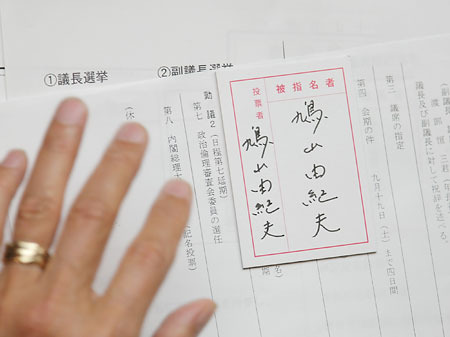 ①議長選挙
②副議長選挙
被指名者
鳩山由紀夫
投票者
鳩山由紀夫
議長及び副議長に対して祝辞を述べる。
第三 議席の指定
第四 会期の件 九月十九日(土)まで四日間
動議2(日程第七延期)
第七 政治倫理審査会委員の選任
第八 内閣総理
記名投票)
(休